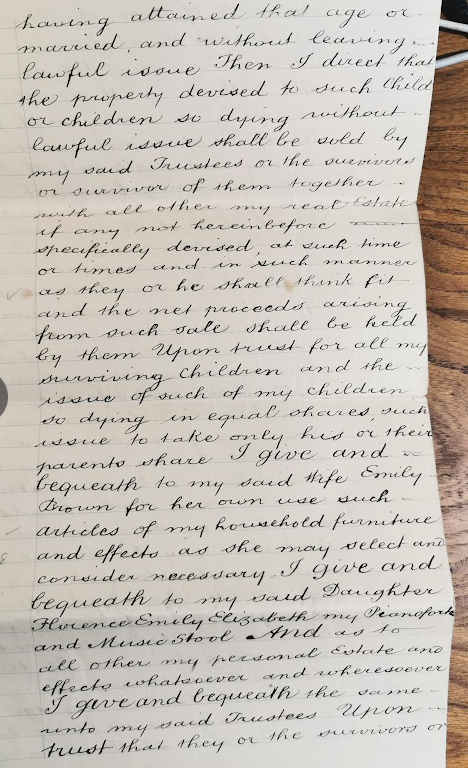 having attained that age or
married, and without leaving
lawful issue Then I direct that
the property devised to such Child
or children so dying without
lawful issue shall be sold by
my said Trustees or the survivors
or survivor of them together
with all other my real Estate
if any not hereinbefore
specifically devised, at such time
or times and in such manner
as they or he shall think fit
and the net proceeds arising
from such sale shall be held
by them Upon trust for all my
surviving Children and the
issue of such of my children
so dying in equal shares, such
issue to take only his or their
parents share I give and
bequeath to my said Wife Emily
Brown for her own use such
articles of my household furniture
and effects as she may select and
consider necessary. I give and
bequeath to my said Daughter
Florence Emily Elizabeth my Pianoforte
and Music Stool And as to
all other my personal Estate and
effects whatsoever and wheresoever
I give and bequeath the same
unto my said Trustees Upon
trust that they or the survivors or